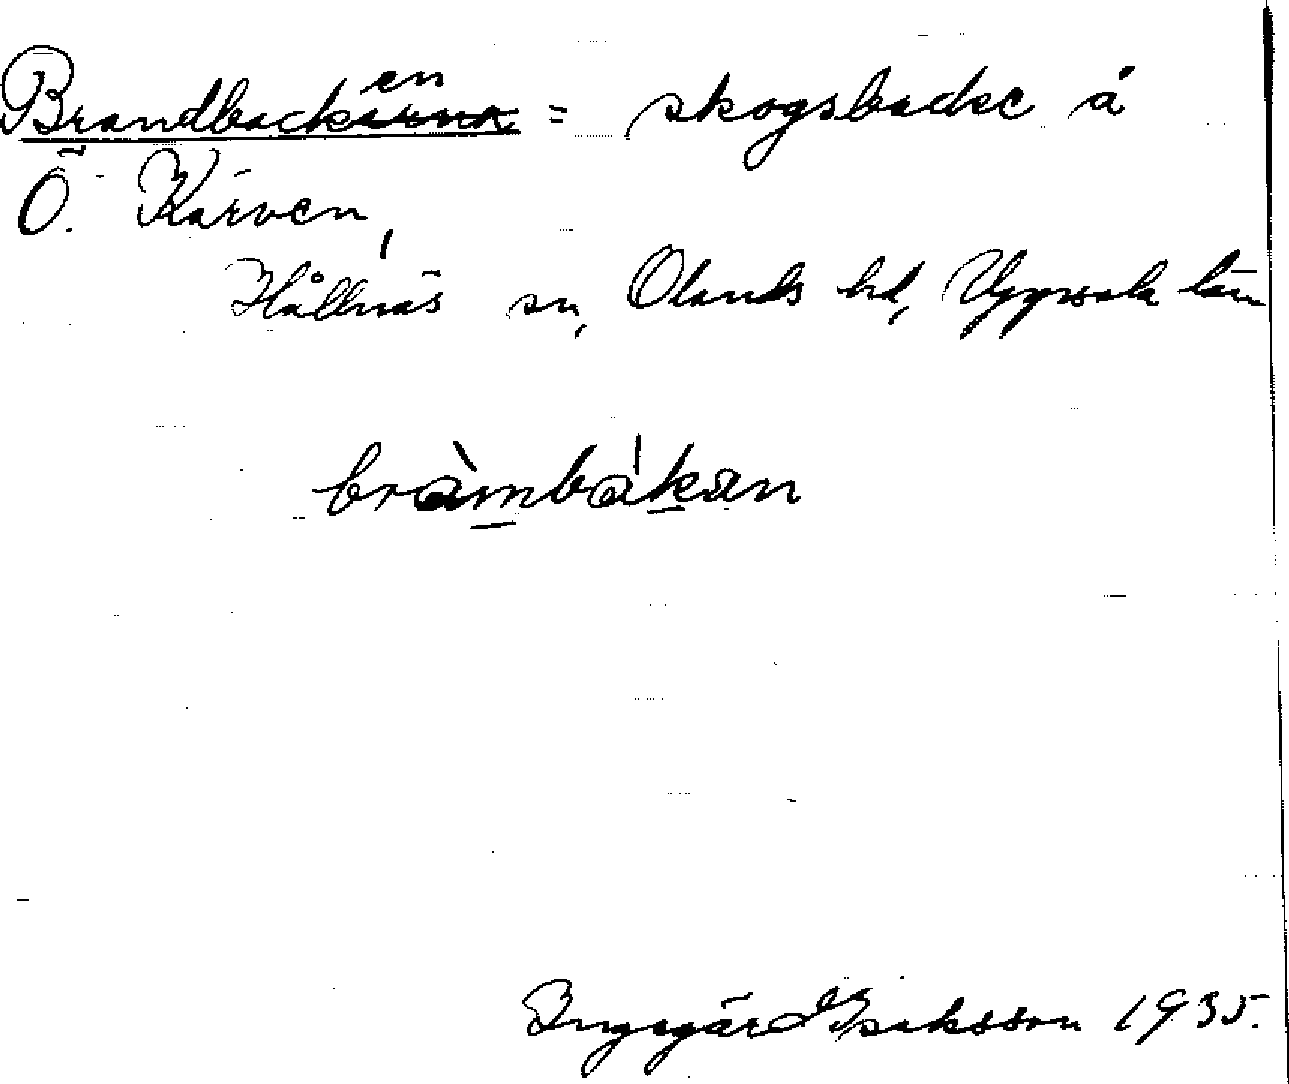 Brandbacken = skogsbacke å
Ö. Kärven,
Hållnäs sn, Olands hd, Uppsala län
bràmbákan
Ingegärd Isaksson 1935.